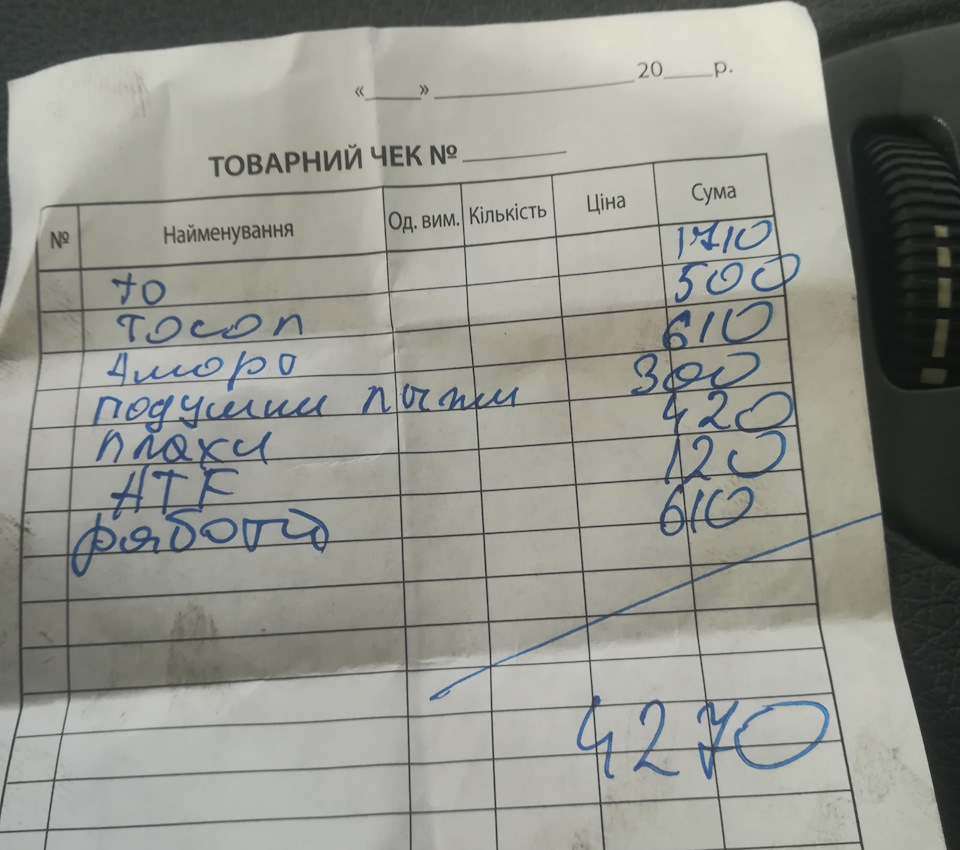 «____» ____________ 20____р.
ТОВАРНИЙ ЧЕК № ________
№ Найменування Од. вим. Кількість Ціна Сума
ТО 1710
тосол 500
Аморо 610
подушки лыжи 300
плаки 420
ATF 120
работа 610
4270